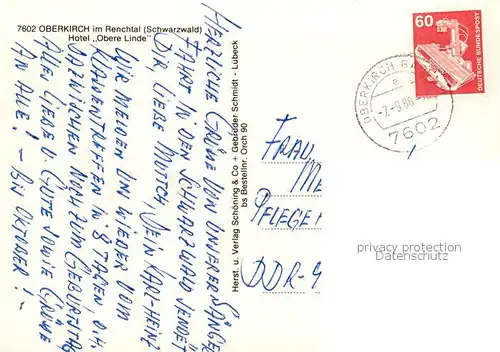 7602 OBERKIRCH im Renchtal (Schwarzwald)
Hotel „Obere Linde"
HERZLICHE GRÜßE VON UNSERER SÄNGER
FAHRT IN DEN SCHWARZWALD SENDET
DIR LIEBE MUTSCH, DEIN KARL-HEINZ
WIR MELDEN UNS WIEDER VOM
KLAVENTREFFEN IN 8 TAGEN
NOCH ZUM GEBURTSTAG
ALLES LIEBE U. GUTE SOWIE GRÜßE
AN ALLE! - BIN OKTOBER!
Herst. u. Verlag Schöning & Co + Gebrüder Schmidt - Lübeck
bs Bestellnr. Orch 90
FRAU
ME
PFLEGE
DDR-
60
DEUTSCHE BUNDESPOST
OBERKIRCH
e
-7.-9.86
7602
privacy protection